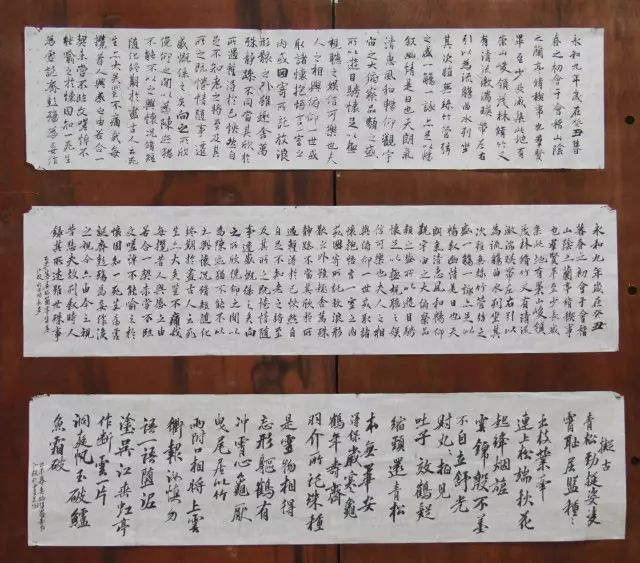 永和九年歲在癸丑暮
春之初會于會稽山陰
之蘭亭脩稧事也羣賢
畢至少長咸集此地有
崇山峻領茂林脩竹又
有清流激湍暎帶左右
引以為流觴曲水列坐
其次雖無絲竹管弦
之盛一觴一詠亦足以暢
叙幽情是日也天朗氣
清惠風和暢仰觀宇
宙之大俯察品類之盛
所以遊目騁懷足以極
視聽之娛信可樂也夫
人之相與俯仰一世或
取諸懷抱悟言一室之
內或因寄所託放浪
形骸之外雖趣舍萬
殊靜躁不同當其欣於
所遇蹔得於己怏然自
足不知老之將至及其
所之既惓情隨事遷
感慨係之矣向之所欣
俛仰之間以為陳迹猶
不能不以之興懷況脩短
隨化終期於盡古人云死
生亦大矣豈不痛哉每
攬昔人興感之由若合一
契未嘗不臨文嗟悼不
能喻之於懷固知一死生
為虛誕齊彭殤為妄作
永和九年歲在癸丑
暮春之初會于會稽
山陰之蘭亭脩稧事
也羣賢畢至少長咸
集此地有崇山峻領
茂林脩竹又有清流
激湍暎帶左右引以
為流觴曲水列坐其
次雖無絲竹管弦之
盛一觴一詠亦足以
暢叙幽情是日也天
朗氣清惠風和暢仰
觀宇宙之大俯察品
類之盛所以遊目騁
懷足以極視聽之娛
信可樂也夫人之相
與俯仰一世或取諸
懷抱悟言一室之內
或因寄所託放浪形
骸之外雖趣舍萬殊
靜躁不同當其欣於所
遇蹔得於己怏然自
足不知老之將至
及其所之既惓情隨
事遷感慨係之矣向
之所欣俛仰之間以
為陳迹猶不能不以
之興懷況脩短隨化
終期於盡古人云死
生亦大矣豈不痛哉
每攬昔人興感之由
若合一契未嘗不臨
文嗟悼不能喻之於
懷固知一死生為虛
誕齊彭殤為妄作後
之視今亦由今之視
昔悲夫故列敘時人
錄其所述雖世殊事
擬古
青松勁挺姿凌
霄恥屈盤種〻
出枝葉牽
連上松端秋花
起絳烟旖
雲錦殷不羞
不自立舒光
射丸〻柏見
吐子效鶴疑
縮頸還青松
本無華安
得保歲寒龜
鶴年壽齊
羽介所託殊種
是靈物相得
忘形軀鶴有
冲霄心龜厭
曳尾居以竹
兩附口相將上雲
衢報汝慎勿
語一語墮泥
塗吳江垂虹亭
作斷雲一片
洞庭帆玉破鱸
魚霜破